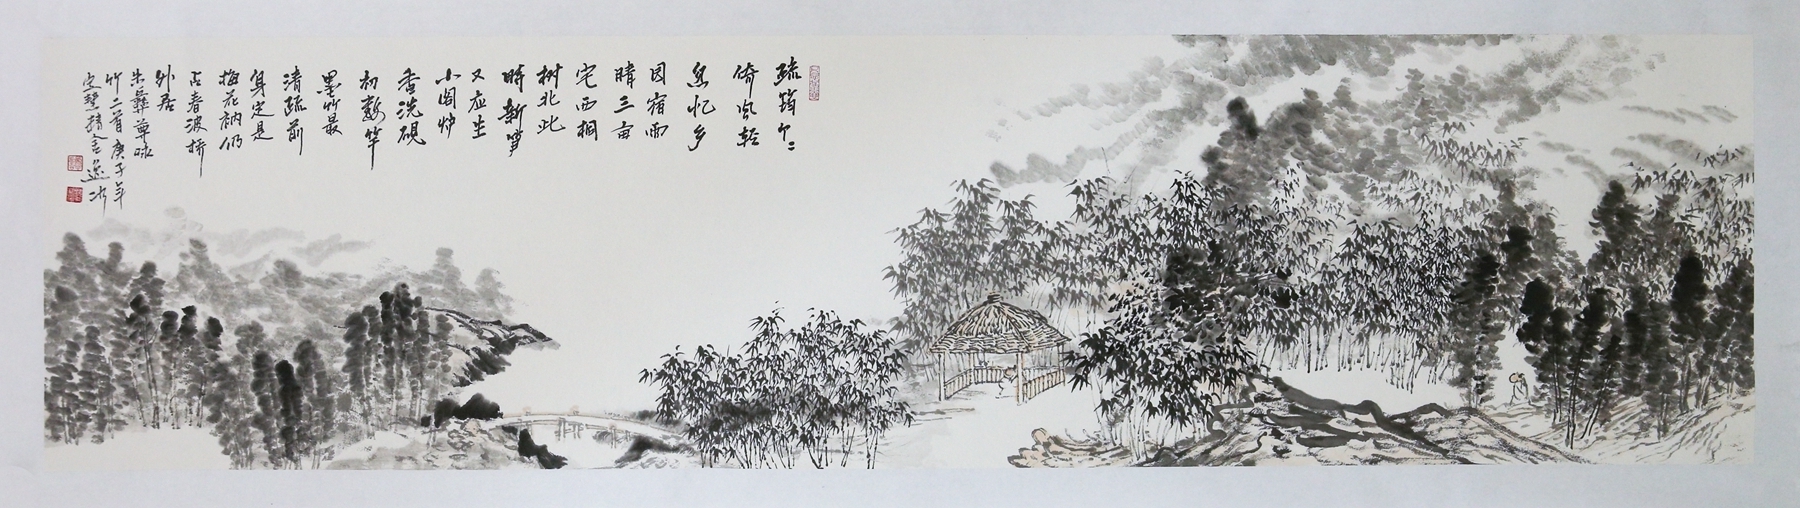 疏筠个々
倚风轻
忽忆乡
园宿雨
晴三亩
宅西桐
树北此
时新笋
又应生
小阁炉
香洗砚
初数竿
墨竹最
清疏前
身定是
梅花衲仍
占春波桥
外居
朱彝尊咏
竹二首庚子年
定慧精舍逸